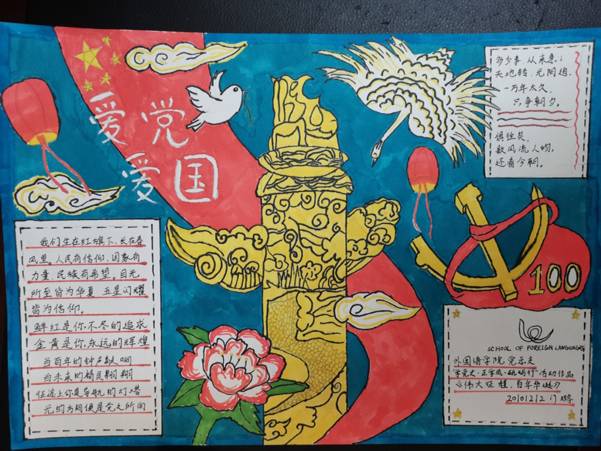 爱党
爱国
多少事 从来急;
天地转, 光阴迫,
一万年太久,
只争朝夕。
俱往矣,
数风流人物,
还看今朝。
我们生在红旗下,长在春
风里,人民有信仰,国家有
力量,民族有希望。目光
所至皆为华夏,五星闪耀
皆为信仰。
鲜红是你不尽的追求
金黄是你永远的辉煌
当百年的钟声敲响
为未来的
你
100
SCHOOL OF FOREIGN LANGUAGES
外国语学院党
学党史
心伟大征程,百年华诞